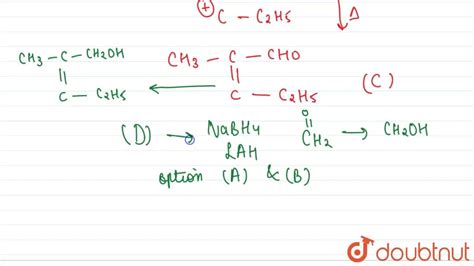 ⊕ C – C2H5 ↓ Δ
CH3 – C – CH2OH
||
C – C2H5
CH3 – C – CHO
||
C – C2H5 (C)
(D) → NaBH4
LAH
O
||
CH2 → CH2OH
option (A) & (B)
doubtnut